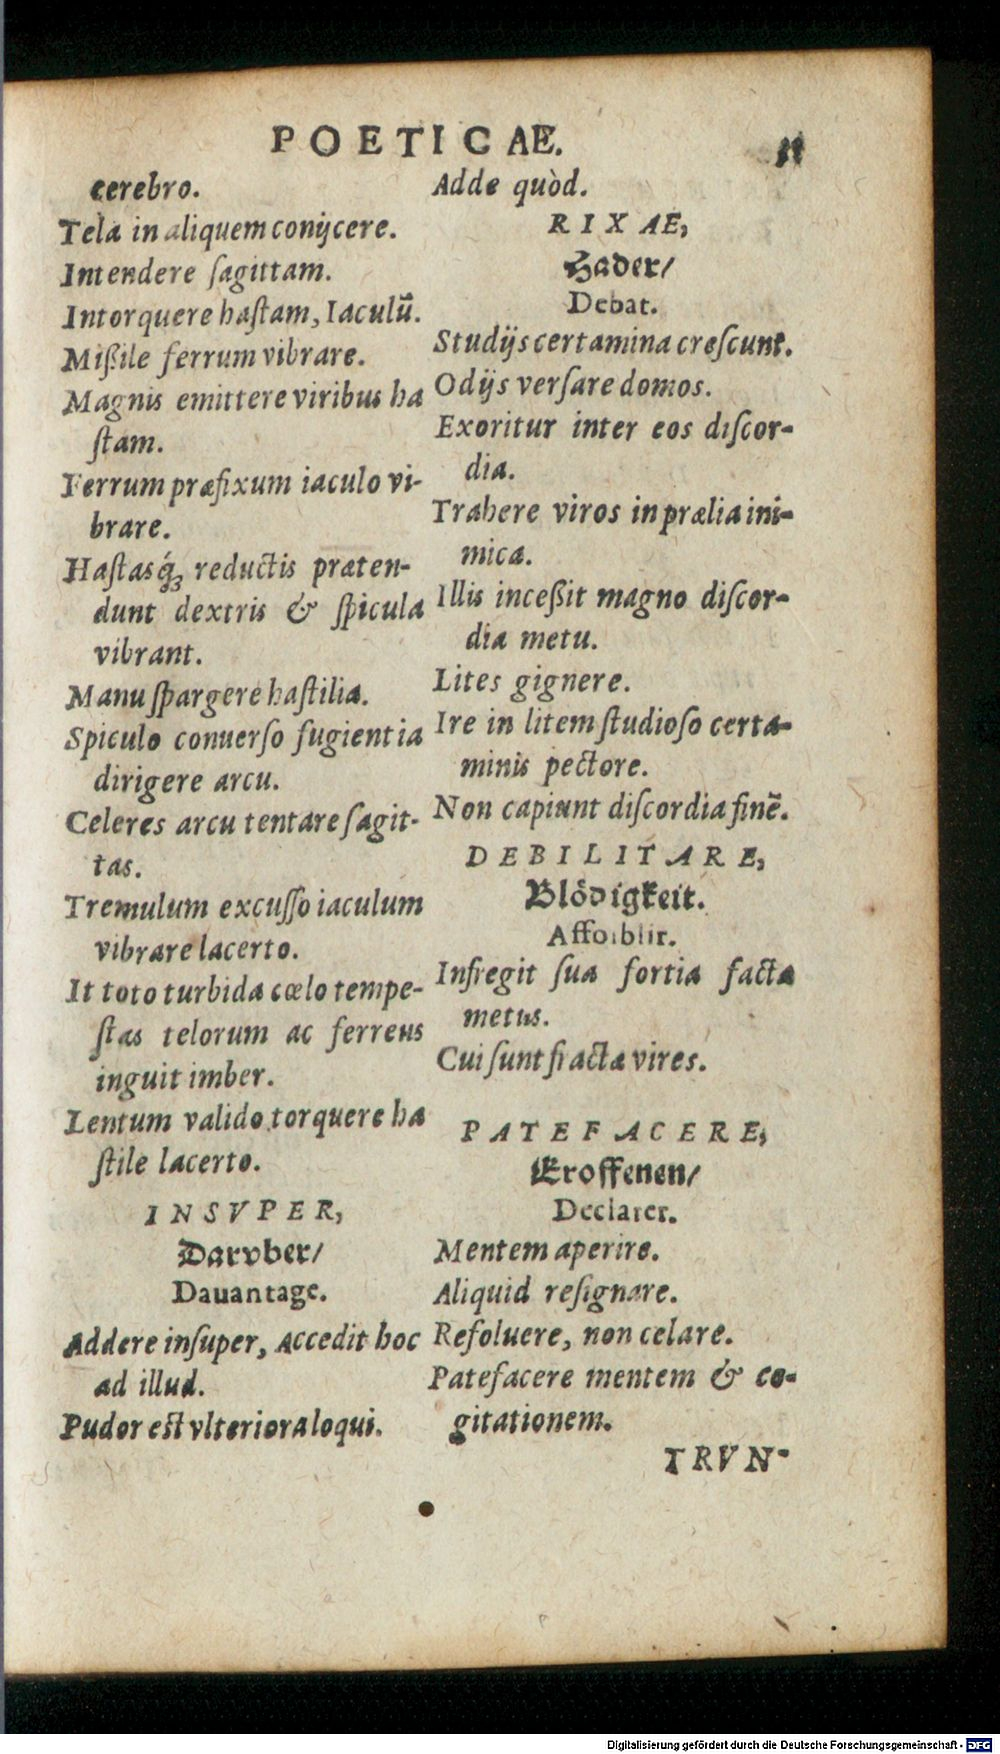 POETICAE.
11
cerebro.
Tela in aliquem conijcere.
Intendere ſagittam.
Intorquere haſtam, Iaculū.
Mißile ferrum vibrare.
Magnis emittere viribus ha
ſtam.
Ferrum præfixum iaculo vi-
brare.
Haſtasq́ꝫ reductis præten-
dunt dextris & ſpicula
vibrant.
Manu ſpargere haſtilia.
Spiculo conuerſo fugientia
dirigere arcu.
Celeres arcu tentare ſagit-
tas.
Tremulum excuſſo iaculum
vibrare lacerto.
It toto turbida cœlo tempe-
ſtas telorum ac ferreus
inguit imber.
Lentum valido torquere ha
ſtile lacerto.
INSVPER,
Darvber/
Dauantage.
Addere inſuper, accedit hoc
ad illud.
Pudor eſt vlteriora loqui.
Adde quòd.
RIXAE,
Hader/
Debat.
Studijs certamina creſcunt.
Odijs verſare domos.
Exoritur inter eos diſcor-
dia.
Trahere viros in prælia ini-
mica.
Illis inceßit magno diſcor-
dia metu.
Lites gignere.
Ire in litem ſtudioſo certa-
minis pectore.
Non capiunt diſcordia finē.
DEBILITARE,
Blödigkeit.
Affoiblir.
Infregit ſua fortia facta
metus.
Cui ſunt fractæ vires.
PATEFACERE,
Eroffenen/
Declarer.
Mentem aperire.
Aliquid reſignare.
Reſoluere, non celare.
Patefacere mentem & co-
gitationem.
TRVN-
Digitalisierung gefördert durch die Deutsche Forschungsgemeinschaft - DFG